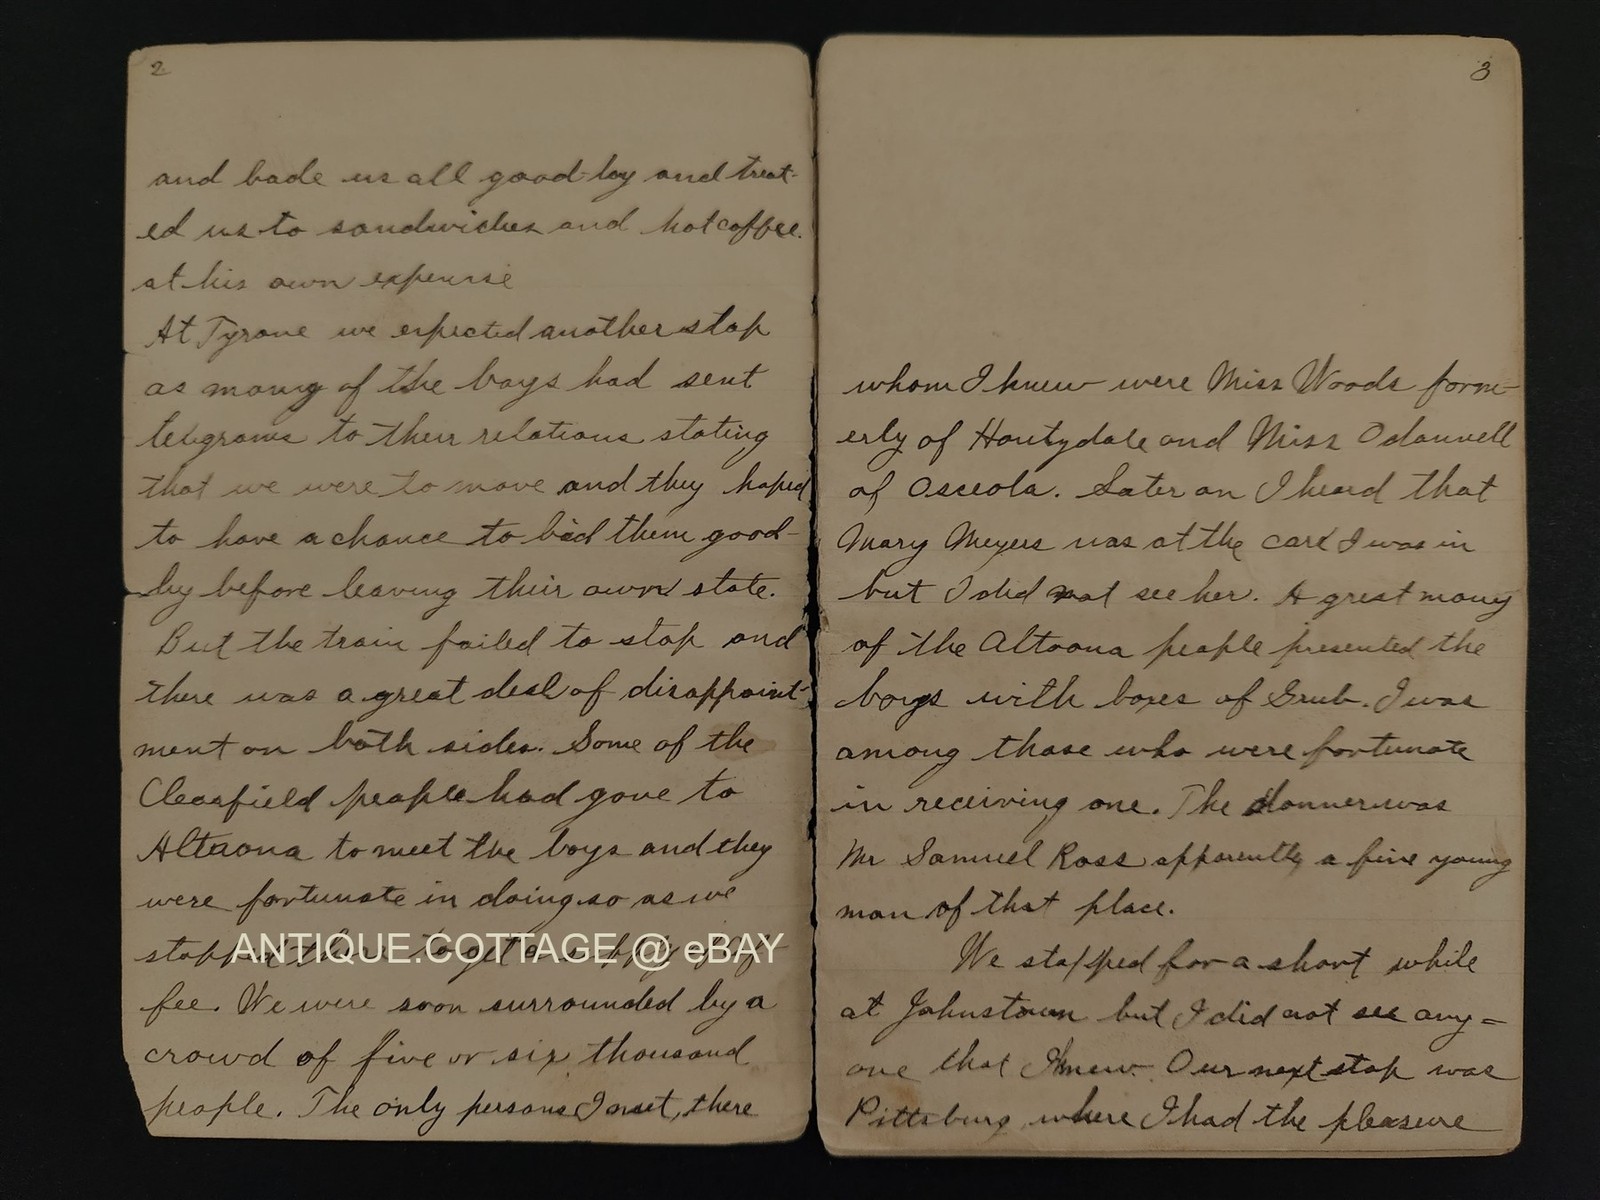 2
and bade us all good-by and treat-
ed us to sandwiches and hot coffee.
at his own expense
At Tyrone we expected another stop
as many of the boys had sent
telegrams to their relations stating
that we were to move and they hoped
to have a chance to bid them good-
by before leaving their own state.
But the train failed to stop and
there was a great deal of disappoint-
ment on both sides. Some of the
Clearfield people had gone to
Altoona to meet the boys and they
were fortunate in doing so as we
stopped there to get a supply of cof-
ANTIQUE.COTTAGE @ eBAY
fee. We were soon surrounded by a
crowd of five or six thousand
people. The only persons I met, there
3
whom I knew were Miss Woods form-
erly of Houtzdale and Miss Odonnell
of Osceola. Later on I heard that
Mary Meyers was at the car I was in
but I did not see her. A great many
of the Altoona people presented the
boys with boxes of Grub. I was
among those who were fortunate
in receiving one. The donner was
Mr Samuel Ross apparently a fine young
man of that place.
We stopped for a short while
at Johnstown but I did not see any=
one that I knew. Our next stop was
Pittsburg where I had the pleasure